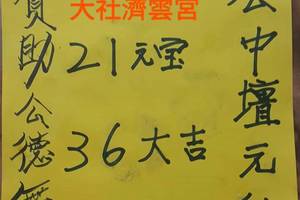 大社濟雲宮
中壇元
21元宝
36大吉
贊助公德無